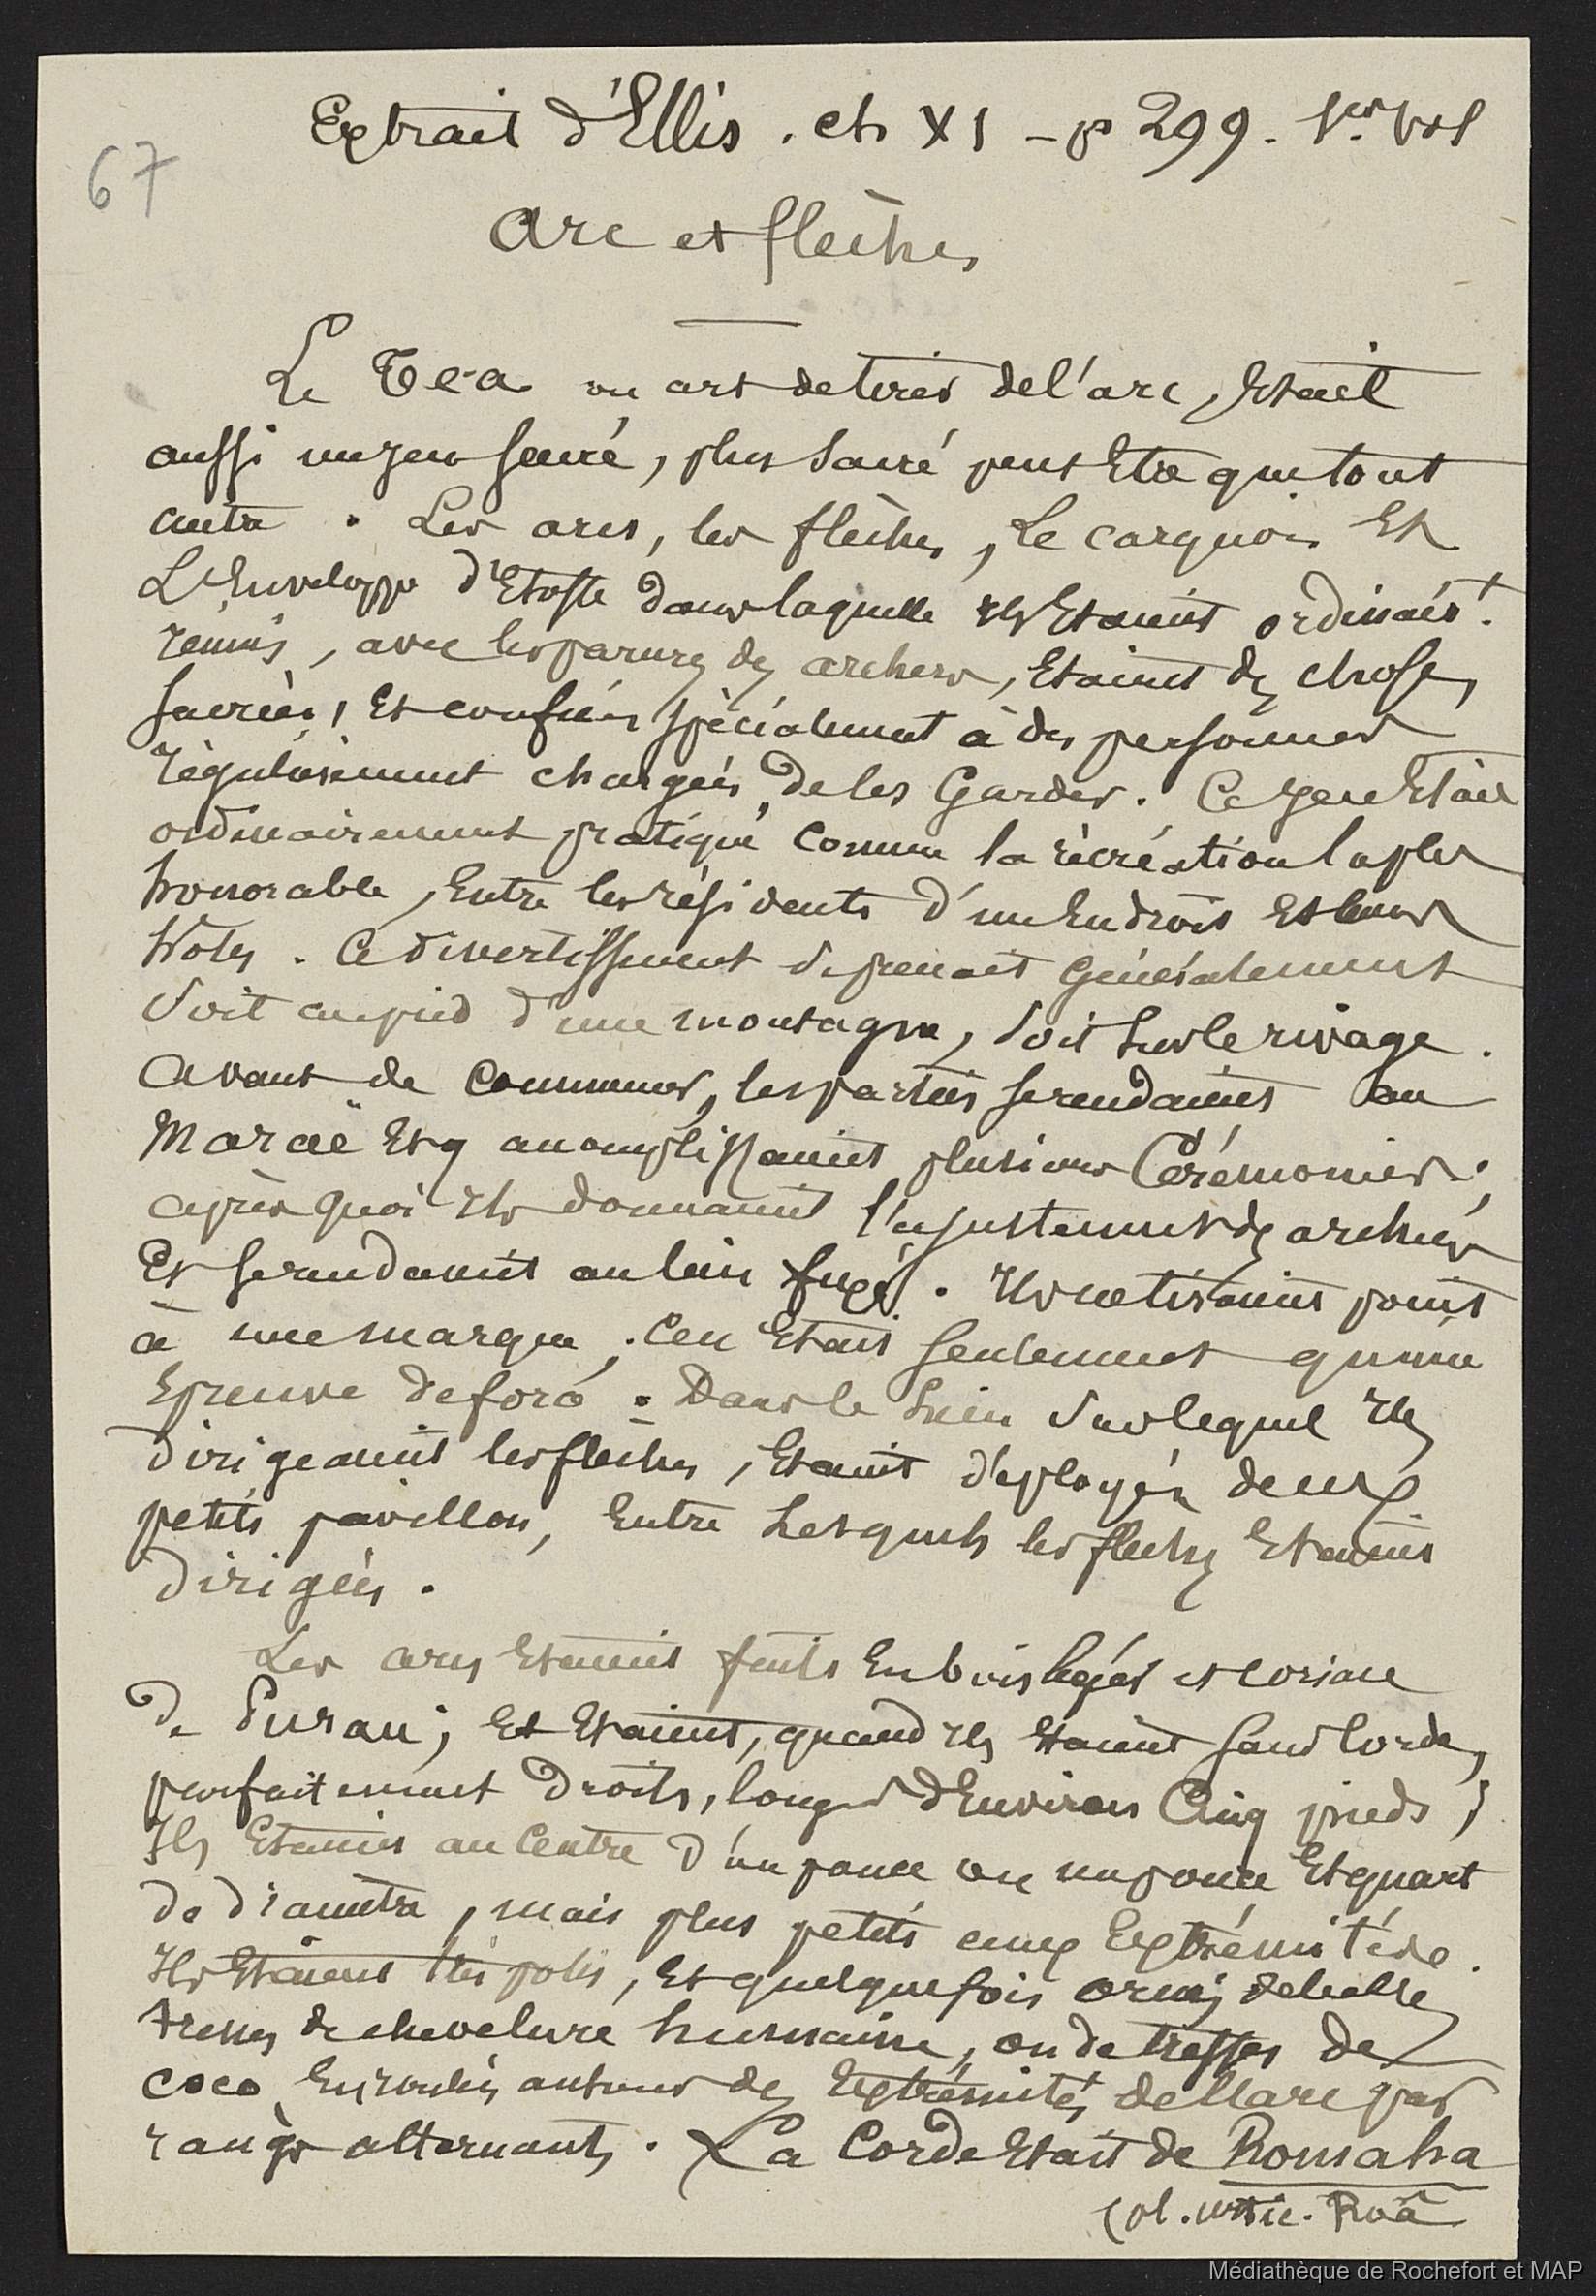 67
Extrait d'Ellis. ch XI - p 299. 1er vol
Arc et flèches
Le Te-a ou art de tirer de l'arc, était
aussi un jeu sacré, plus sacré peut être que tout
autre. Les arcs, les flèches, le carquois et
L'Enveloppe d'Etoffe dans laquelle ils étaient ordinairt.
remis, avec les parures des archers, étaient des choses
sacrées, et confiées spécialement à des personnes
régulièrement chargées de les garder. Ce jeu était
ordinairement pratiqué comme la récréation la plus
honorable, entre les résidents d'un endroit et leurs
hôtes. Ce divertissement se prenait généralement
soit au pied d'une montagne, soit sur le rivage.
Avant de commencer, les parties se rendaient au
Maraë et y accomplissaient plusieurs Cérémonies;
après quoi ils donnaient l'ajustement des archers
Et se rendaient au lieu fixé. Ils ne tiraient point
à une marque; ce n'était seulement qu'une
Epreuve de force. Dans le lieu sur lequel ils
dirigeaient les flèches, étaient déployés deux
petits pavillons, entre lesquels les flèches étaient
dirigées.
Les arcs étaient faits en bois léger et coriace
de Purau; et étaient, quand ils étaient sans corde,
parfaitement droits, longs d'environ Cinq pieds;
Ils étaient au centre d'un pouce ou un pouce et quart
de diamètre, mais plus petits aux extrémités.
Ils étaient très polis, et quelquefois ornés de belles
tresses de chevelure humaine, ou de tresses de
coco enroulées autour des extrémités de l'arc par
rangs alternants. La Corde était de Romaha
(pl. urtic. Roâ
Médiathèque de Rochefort et MAP